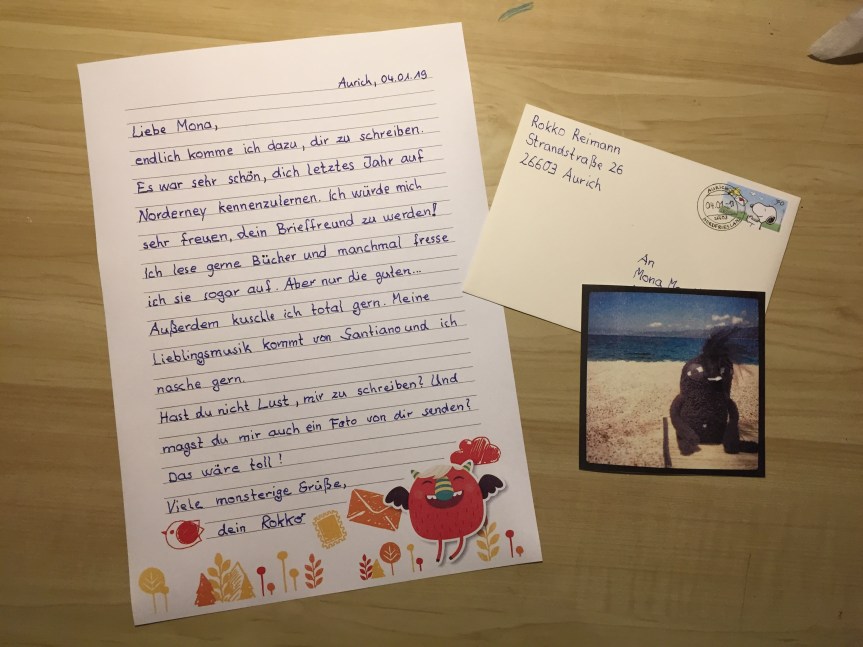 Aurich, 04.01.19
Liebe Mona,
endlich komme ich dazu, dir zu schreiben.
Es war sehr schön, dich letztes Jahr auf
Norderney kennenzulernen. Ich würde mich
sehr freuen, dein Brieffreund zu werden!
Ich lese gerne Bücher und manchmal fresse
ich sie sogar auf. Aber nur die guten...
Außerdem kuschle ich total gern. Meine
Lieblingsmusik kommt von Santiano und ich
nasche gern.
Hast du nicht Lust, mir zu schreiben? Und
magst du mir auch ein Foto von dir senden?
Das wäre toll!
Viele monsterige Grüße,
dein Rokko
Rokko Reimann
Strandstraße 26
26603 Aurich
AURICH
70
An
Mona M